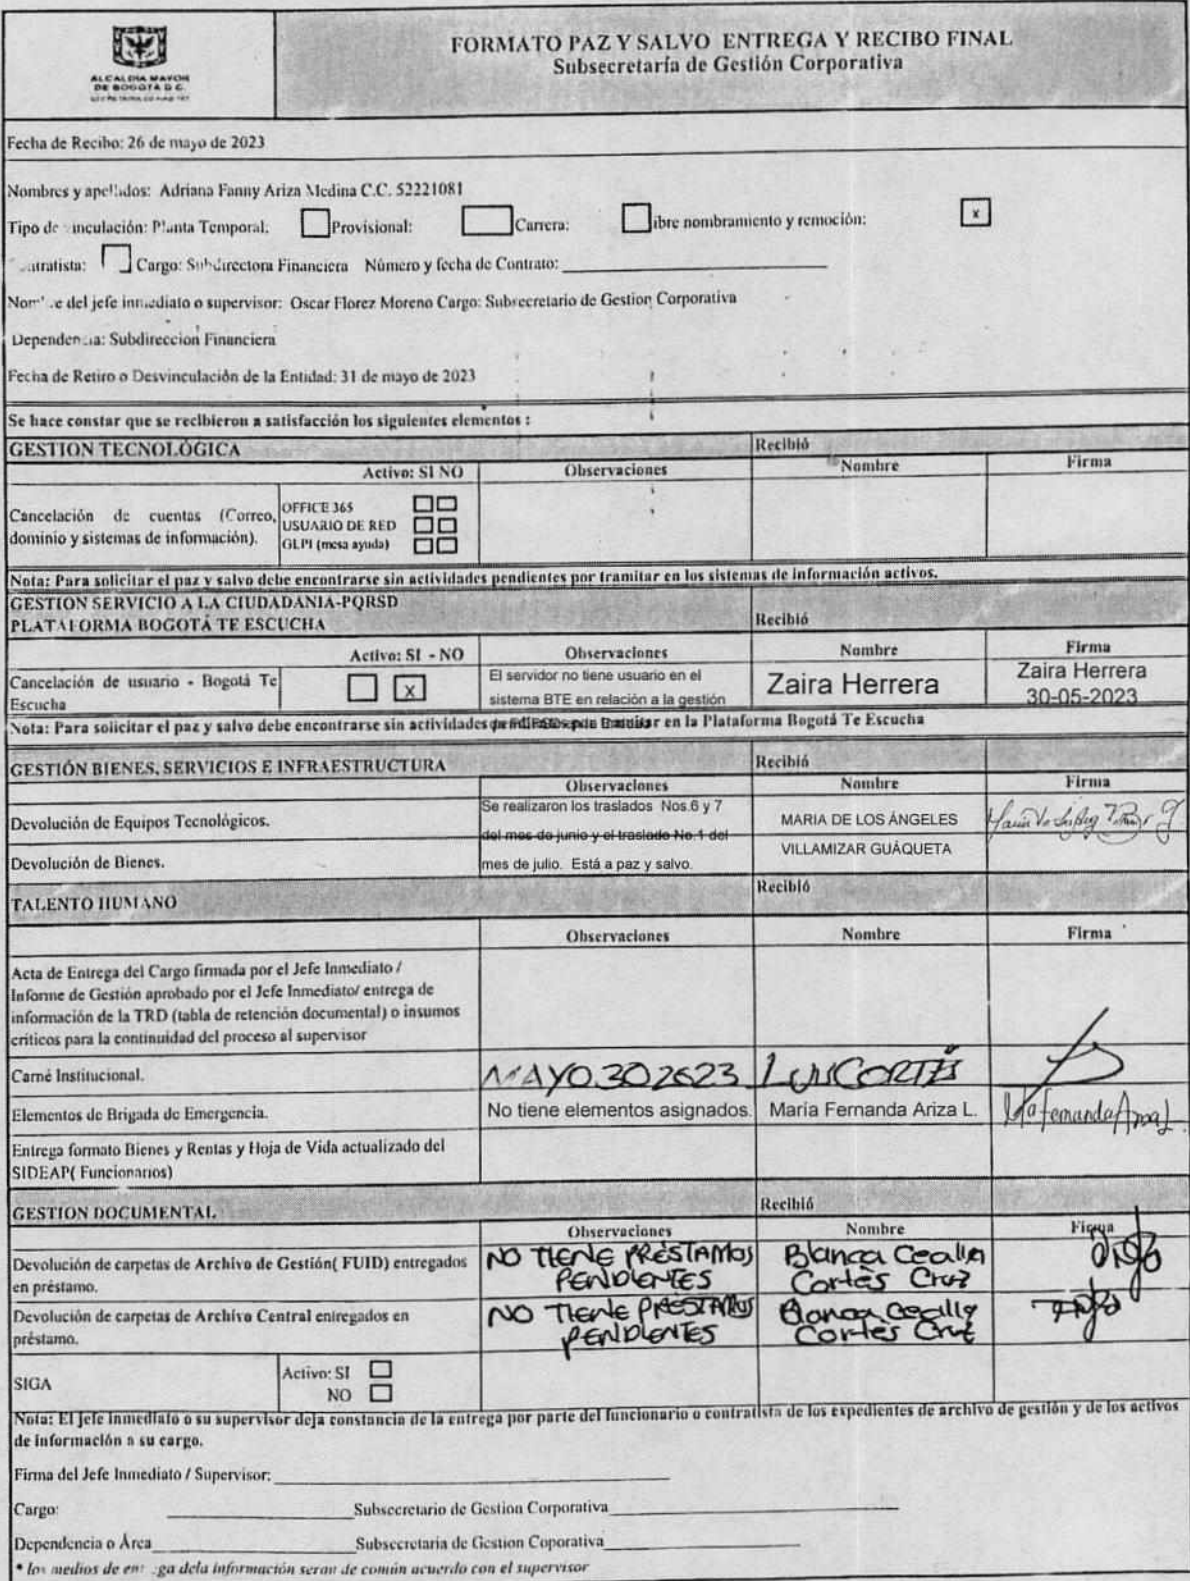 ALCALDIA MAYOR
DE BOGOTÁ D.C.
FORMATO PAZ Y SALVO ENTREGA Y RECIBO FINAL
Subsecretaría de Gestión Corporativa
Fecha de Recibo: 26 de mayo de 2023
Nombres y apellidos: Adriana Fanny Ariza Medina C.C. 52221081
Tipo de vinculación: Planta Temporal: Provisional: Carrera: ibre nombramiento y remoción: x
Cargo: Subdirectora Financiera Número y fecha de Contrato:
Nombre del jefe inmediato o supervisor: Oscar Florez Moreno Cargo: Subsecretario de Gestion Corporativa
Dependencia: Subdireccion Financiera
Fecha de Retiro o Desvinculación de la Entidad: 31 de mayo de 2023
Se hace constar que se recibieron a satisfacción los siguientes elementos :
GESTION TECNOLÓGICA Recibió
Activo: SI NO Observaciones Nombre Firma
Cancelación de cuentas (Correo, dominio y sistemas de información).
OFFICE 365
USUARIO DE RED
GLPI (mesa ayuda)
Nota: Para solicitar el paz y salvo debe encontrarse sin actividades pendientes por tramitar en los sistemas de información activos.
GESTION SERVICIO A LA CIUDADANIA-PQRSD
PLATAFORMA BOGOTÁ TE ESCUCHA Recibió
Activo: SI - NO Observaciones Nombre Firma
Cancelación de usuario - Bogotá Te
Escucha
x
El servidor no tiene usuario en el
sistema BTE en relación a la gestión
Zaira Herrera
Zaira Herrera
30-05-2023
Nota: Para solicitar el paz y salvo debe encontrarse sin actividades tramitar en la Plataforma Bogotá Te Escucha
GESTIÓN BIENES, SERVICIOS E INFRAESTRUCTURA Recibió
Observaciones Nombre Firma
Devolución de Equipos Tecnológicos.
Devolución de Bienes.
Se realizaron los traslados Nos.6 y 7
del mes de junio y el traslado No.1 del
mes de julio. Está a paz y salvo.
MARIA DE LOS ÁNGELES
VILLAMIZAR GUÁQUETA
TALENTO HUMANO Recibió
Observaciones Nombre Firma
Acta de Entrega del Cargo firmada por el Jefe Inmediato /
Informe de Gestión aprobado por el Jefe Inmediato/ entrega de
información de la TRD (tabla de retención documental) o insumos
críticos para la continuidad del proceso al supervisor
Carné Institucional. MAYO 30 2023 LUIS CORTÉS
Elementos de Brigada de Emergencia. No tiene elementos asignados. María Fernanda Ariza L. Ma Fernanda Ariza L.
Entrega formato Bienes y Rentas y Hoja de Vida actualizado del
SIDEAP( Funcionarios)
GESTION DOCUMENTAL Recibió
Observaciones Nombre Firma
Devolución de carpetas de Archivo de Gestión( FUID) entregados
en préstamo.
NO TIENE PRÉSTAMOS
PENDIENTES
Blanca Cecilia
Cortés Cruz
Devolución de carpetas de Archivo Central entregados en
préstamo.
NO TIENE PRÉSTAMOS
PENDIENTES
Blanca Cecilia
Cortés Cruz
SIGA
Activo: SI
NO
Nota: El jefe Inmediato o su supervisor deja constancia de la entrega por parte del funcionario o contratista de los expedientes de archivo de gestión y de los activos
de información a su cargo.
Firma del Jefe Inmediato / Supervisor:
Cargo: Subsecretario de Gestion Corporativa
Dependencia o Área Subsecretaria de Gestion Coporativa
* los medios de entrega dela información seran de común acuerdo con el supervisor